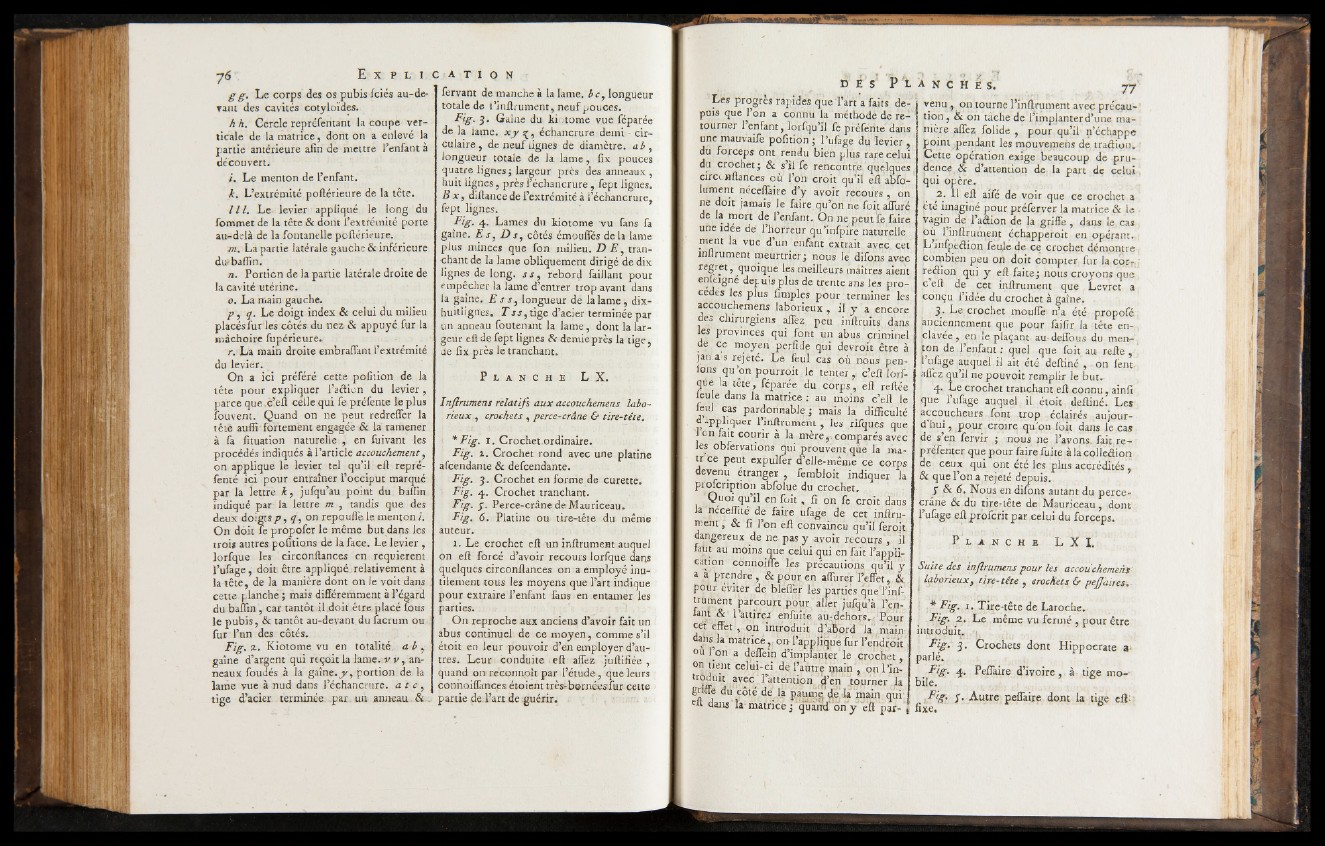 76
EXPLICATION
gg. Le corps des os pubis ſciés au-de-
vant des cavités cotyloïdes.
hh. Cercle repréſentant la coupe ver-
ticale de la matrice, dont on a enlevé la
partie antérieure afin de mettre l'enfant à
découvert.
i. Le menton de l'enfant.
k. L'extrémité poſtérieure de la tête.
lll. Le levier appliqué le long du
ſommet de la tête & dont l'extrémité porte
au-delà de la fontanelle poſtérieure.
m. La partie latérale gauche & inférieure
du baſſin.
n. Portion de la partie latérale droite de
la cavité utérine.
o. La main gauche.
p, q. Le doigt index & celui du milieu
placés ſur les côtés du nez & appuyé ſur la
mâchoire ſupérieure.
r. La main droite embraſſant l'extrémité
du levier.
On a ici préféré cette poſition de la
tête pour expliquer l'action du levier,
parce que c'eſt celle qui ſe préſente le plus
ſouvent. Quand on ne peut redreſſer la
tête auſſi fortement engagée & la ramener
à ſa ſituation naturelle, en ſuivant les
procédés indiqués à l'article accouchement,
on applique le levier tel qu'il eſt repré-
ſenté ici pour entraîner l'occiput marqué
par la lettre k, juſqu'au point du baſſin
indiqué par la lettre m, tandis que des
deux doigts p, q, on repouſſe le menton i.
On doit ſe propoſer le même but dans les
trois autres poſitions de la face. Le levier,
lorſque les circonſtances en requierent
l'uſage, doit être appliqué relativement à
la tête, de la manière dont on le voit dans
cette planche; mais différemment à l'égard
du baſſin, car tantôt il doit être placé ſous
le pubis, & tantôt au-devant du ſacrum ou
ſur l'un des côtés.
Fig. 2. Kiotome vu en totalité a b,
gaîne d'argent qui reçoit la lame. v v, an-
neaux ſoudés à la gaîne. y, portion de la
lame vue à nud dans l'échancrure. a t c,
tige d'acier terminée par un anneau &
ſervant de manche à la lame. b c, longueur
totale de l'inſtrument, neuf pouces.
Fig. 3. Gaîne du kiotome vue ſéparée
de la lame. x y z, échancrure demi-cir-
culaire, de neuf lignes de diamètre. a b,
longueur totale de la lame, ſix pouces
quatre lignes; largeur près des anneaux,
huit lignes, près l'échancrure, ſept lignes.
B x, diſtance de l'extrémité à l'échancrure,
ſept lignes.
Fig. 4. Lames du kiotome vu ſans ſa
gaîne. E s, D s, côtés émouſſés de la lame
plus minces que ſon milieu. D E, tran-
chant de la lame obliquement dirigé de dix
lignes de long. s s, rebord ſaillant pour
empêcher la lame d'entrer trop avant dans
la gaîne. E s s, longueur de la lame, dix-
huit lignes. T s s, tige d'acier terminée par
un anneau ſoutenant la lame, dont la lar-
geur eſt de ſept lignes & demie près la tige,
de ſix près le tranchant.
PLANCHE LX.
Inſtrumens relatifs aux accouchemens labo-
rieux, crochets, perce-crâne & tire-tête.
* Fig. 1. Crochet ordinaire.
Fig. 2. Crochet rond avec une platine
aſcendante & deſcendante.
Fig. 3. Crochet en forme de curette.
Fig. 4. Crochet tranchant.
Fig. 5. Perce-crâne de Mauriceau.
Fig. 6. Platine ou tire-tête du même
auteur.
1. Le crochet eſt un inſtrument auquel
on eſt forcé d'avoir recours lorſque dans
quelques circonſtances on a employé inu-
tilement tous les moyens que l'art indique
pour extraire l'enfant ſans en entamer les
parties.
On reproche aux anciens d'avoir fait un
abus continuel de ce moyen, comme s'il
étoit en leur pouvoir d'en employer d'au-
tres. Leur conduite eſt aſſez juſtifiée,
quand on reconnoît par l'étude, que leurs
connoiſſances étoient très-bornées ſur cette
partie de l'art de guérir.
DES PLANCHES.
77
Les progrès rapides que l'art a faits de-
puis que l'on a connu la méthode de re-
tourner l'enfant, lorſqu'il ſe préſente dans
une mauvaiſe poſition; l'uſage du levier,
du forceps ont rendu bien plus rare celui
du crochet; & s'il ſe rencontre quelques
circonſtances où l'on croit qu'il eſt abſo-
lument néceſſaire d'y avoir recours, on
ne doit jamais le faire qu'on ne ſoit aſſuré
de la mort de l'enfant. On ne peut ſe faire
une idée de l'horreur qu'inſpire naturelle-
ment la vue d'un enfant extrait avec cet
inſtrument meurtrier; nous le diſons avec
regret, quoique les meilleurs maîtres aient
enſeigné depuis plus de trente ans les pro-
cédés les plus ſimples pour terminer les
accouchemens laborieux, il y a encore
des chirurgiens aſſez peu inſtruits dans
les provinces qui font un abus criminel
de ce moyen perfide qui devroit être à
jamais rejeté. Le ſeul cas où nous pen-
ſons qu'on pourroit le tenter, c'eſt lorſ-
que la tête, ſéparée du corps, eſt reſtée
ſeule dans la matrice: au moins c'eſt le
ſeul cas pardonnable; mais la difficulté
d'appliquer l'inſtrument, les riſques que
l'on fait courir à la mère, comparés avec
les obſervations qui prouvent que la ma-
trice peut expulſer d'elle-même ce corps
devenu étranger, ſembloit indiquer la
proſcription abſolue du crochet.
Quoi qu'il en ſoit, ſi on ſe croit dans
la néceſſité de faire uſage de cet inſtru-
ment, & ſi l'on eſt convaincu qu'il ſeroit
dangereux de ne pas y avoir recours, il
faut au moins que celui qui en fait l'appli-
cation connoiſſe les précautions qu'il y
a à prendre, & pour en aſſurer l'effet, &
pour éviter de bleſſer les parties que l'inſ-
trument parcourt pour aller juſqu'à l'en-
fant & l'attirer enſuite au-dehors. Pour
cet effet, on introduit d'abord la main
dans la matrice, on l'applique ſur l'endroit
où l'on a deſſein d'implanter le crochet,
on tient celui-ci de l'autre main, on l'in-
troduit avec l'attention d'en tourner la
griffe du côté de la paume de la main qui
eſt dans la matrice; quand on y eſt par-
venu, on tourne l'inſtrument avec précau-
tion, & on tâche de l'implanter d'une ma-
nière aſſez ſolide, pour qu'il n'échappe
point pendant les mouvemens de traction.
Cette opération exige beaucoup de pru-
dence & d'attention de la part de celui
qui opère.
2. Il eſt aiſé de voir que ce crochet a
été imaginé pour préſerver la matrice & le
vagin de l'action de la griffe, dans le cas
où l'inſtrument échapperoit en opérant.
L'inſpection ſeule de ce crochet démontre
combien peu on doit compter ſur la cor-
rection qui y eſt faite; nous croyons que
c'eſt de cet inſtrument que Levret a
conçu l'idée du crochet à gaîne.
3. Le crochet mouſſe n'a été propoſé
anciennement que pour ſaiſir la tête en-
clavée, en le plaçant au-deſſous du men-
ton de l'enfant: quel que ſoit au reſte,
l'uſage auquel il ait été deſtiné, on ſent
aſſez qu'il ne pouvoit remplir le but.
4. Le crochet tranchant eſt connu, ainſi
que l'uſage auquel il étoit deſtiné. Les
accoucheurs ſont trop éclairés aujour-
d'hui, pour croire qu'on ſoit dans le cas
de s'en ſervir; nous ne l'avons fait re-
préſenter que pour faire ſuite à la collection
de ceux qui ont été les plus accrédités,
& que l'on a rejeté depuis.
5 & 6. Nous en diſons autant du perce-
crâne & du tire-tête de Mauriceau, dont
l'uſage eſt proſcrit par celui du forceps.
PLANCHE LXI.
Suite des inſtrumens pour les accouchemens
laborieux, tire-tête, crochets & peſſaires.
* Fig. 1. Tire-tête de Laroche.
Fig. 2. Le même vu fermé, pour être
introduit.
Fig. 3. Crochets dont Hippocrate a
parlé.
Fig. 4. Peſſaire d'ivoire, à tige mo-
bile.
Fig. 5. Autre peſſaire dont la tige eſt
fixe.